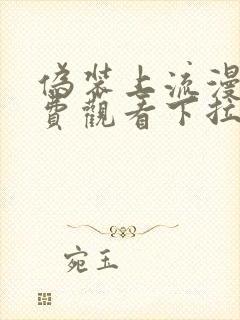 偽裝上流漫
費觀看下拉
宛玉